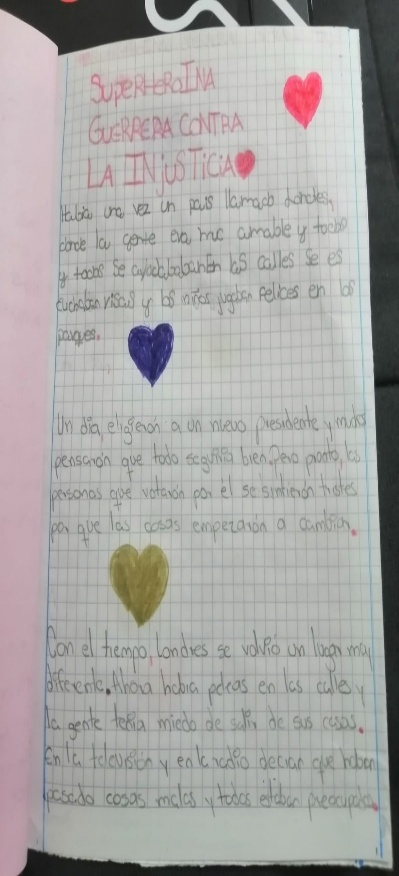 SUPERHEROINA
GUERRERA CONTRA
LA INJUSTICIA
Habia una vez un pais llamado londres,
donde la gente era muc amable y
y todos se En las calles se es
cuchaban risas y los niños jugban felices en los
parques.
Un dia, eligierón a un nuevo presidente y muchos
pensarón que todo seguiria bien, Pero pronto, las
personas que votarón por él se sintierón tristes
por que las cosas empezarón a cambiar.
Con el tiempo, Londres se volvió un lugar muy
diferente. Ahora habia peleas en las calles y
la gente tenia miedo de salir de sus casas.
En la televisión y en la radio decian que habian
pasado cosas malas y todos estaban preocupados.